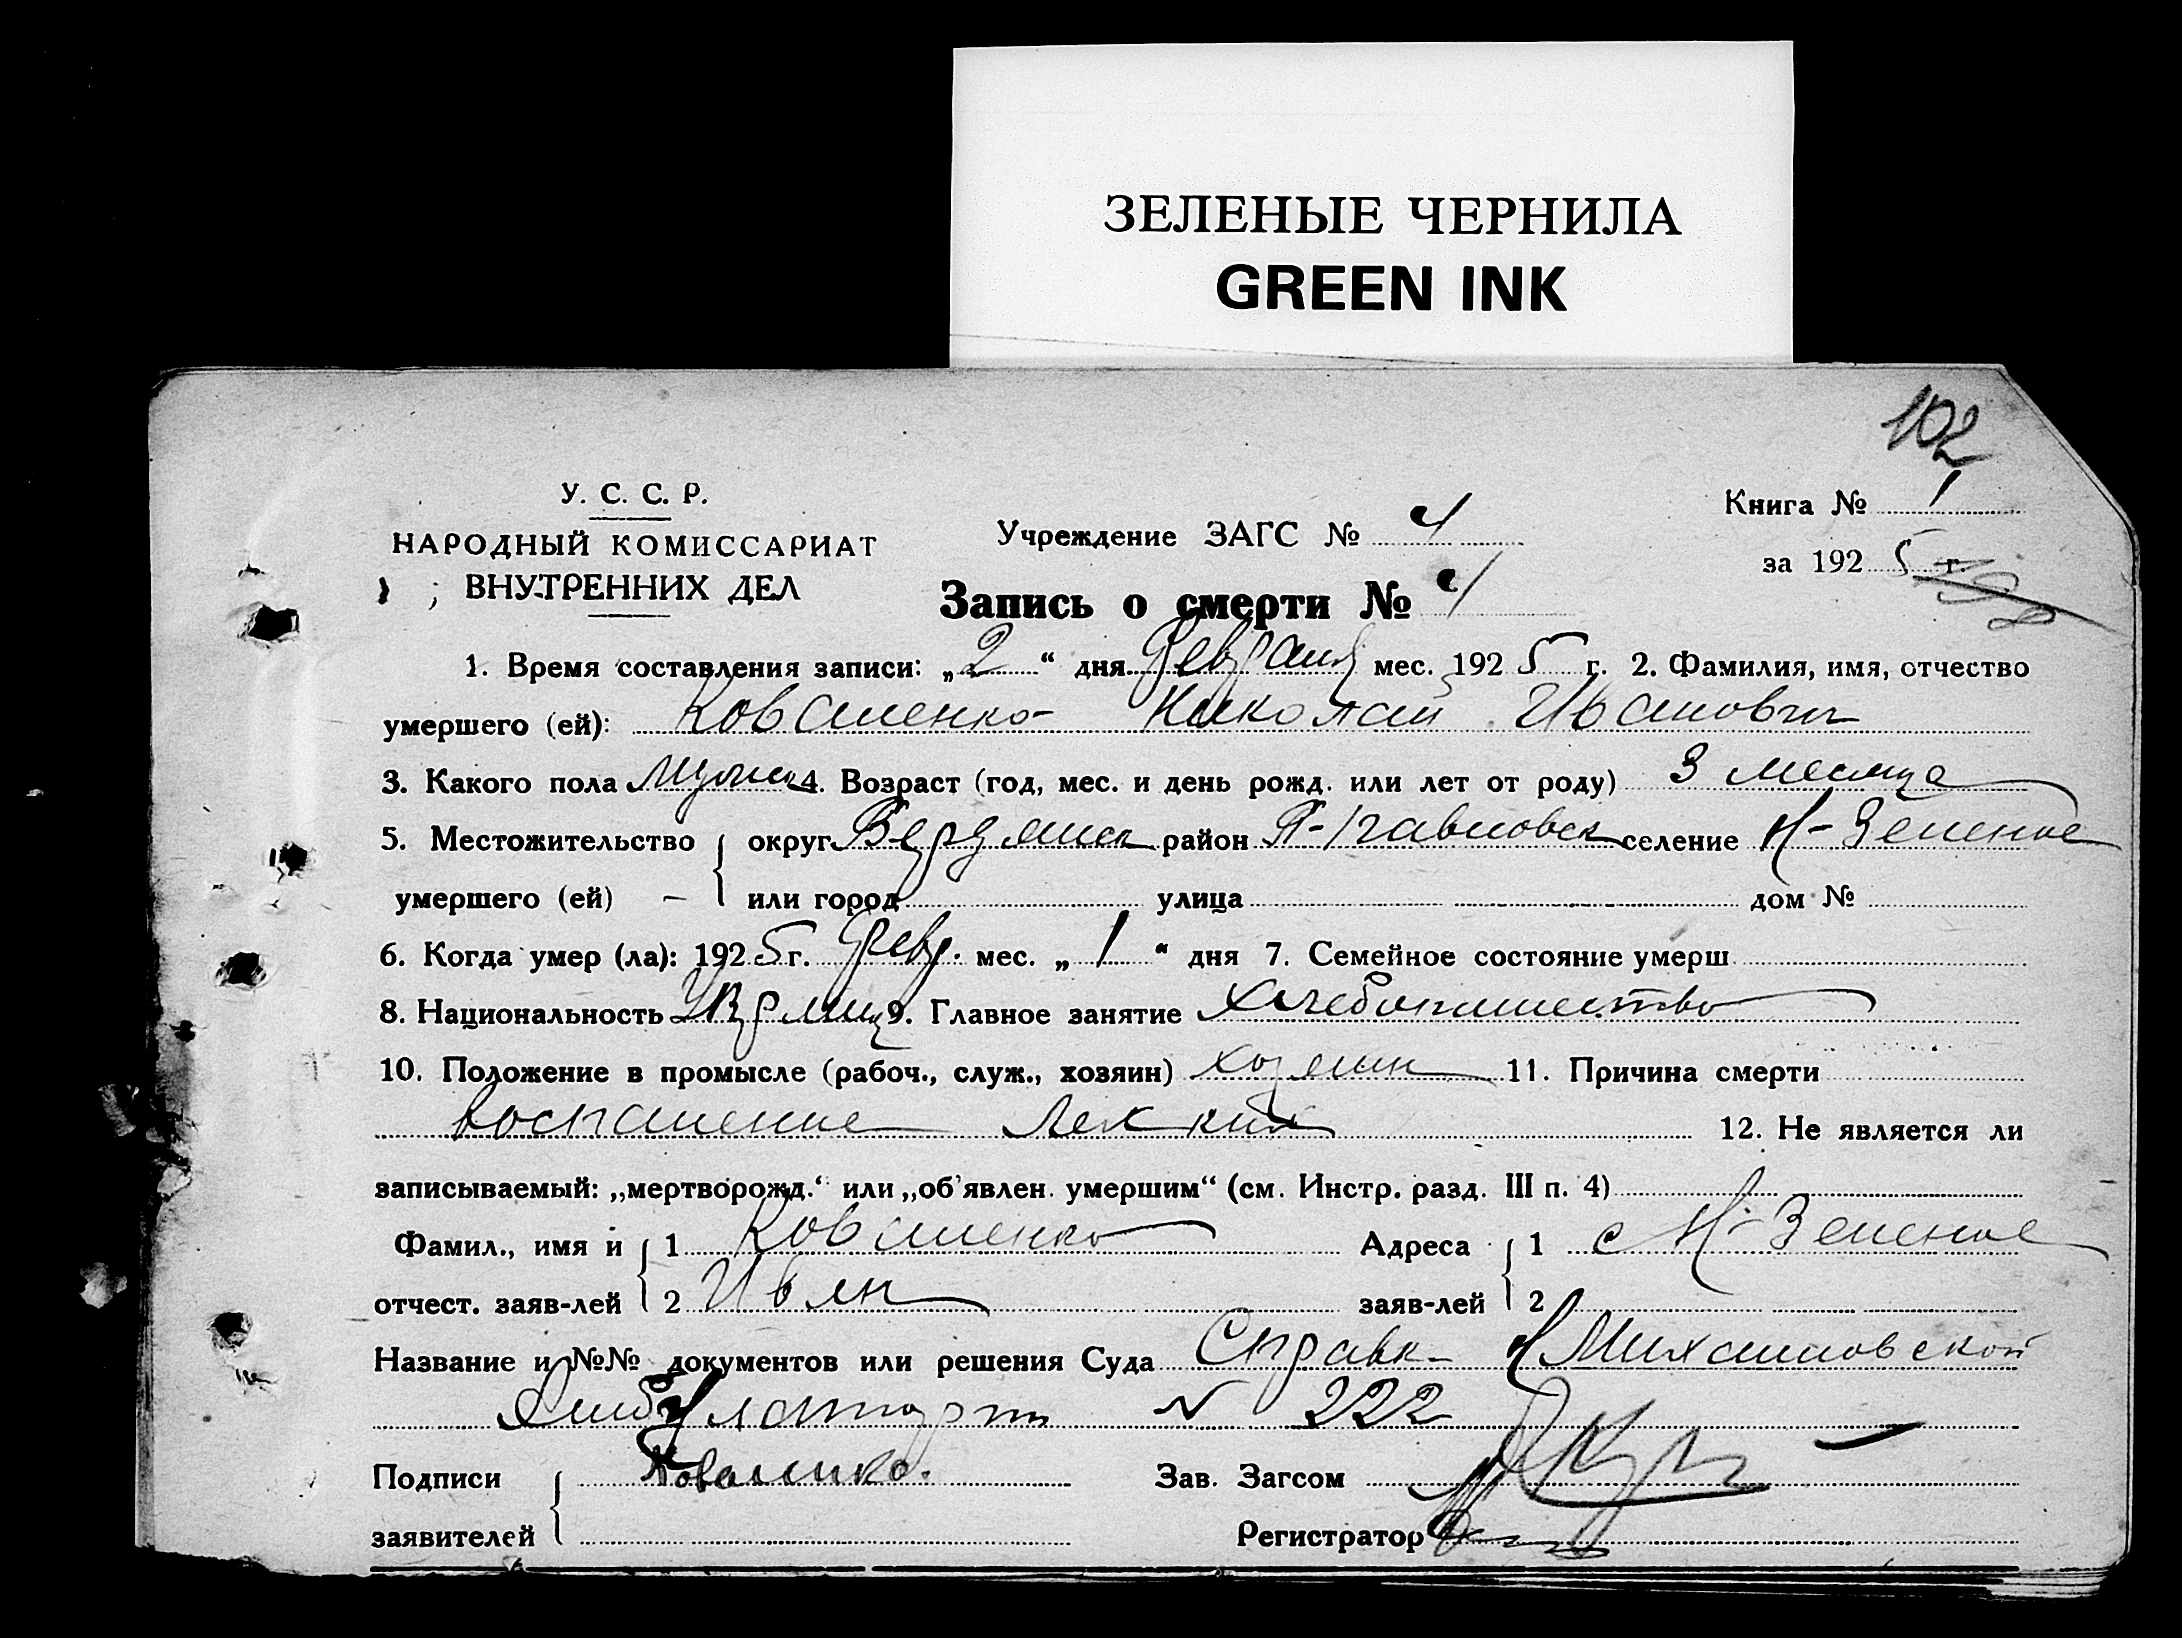 ЗЕЛЕНЫЕ ЧЕРНИЛА
GREEN INK
102
У. С. С. Р.
НАРОДНЫЙ КОМИССАРИАТ
ВНУТРЕННИХ ДЕЛ
Учреждение ЗАГС № 4
Книга № 1
за 1925 г.
Запись о смерти № 4
1. Время составления записи: „2“ дня Февраля мес. 1925 г. 2. Фамилия, имя, отчество
умершего (ей): Коваленко Николай Иванович
3. Какого пола мужск 4. Возраст (год, мес. и день рожд. или лет от роду) 3 месяца
5. Местожительство округ Бердянск район селение Н-Зеленое
умершего (ей) – или город улица дом №
6. Когда умер (ла): 1925 г. Февр. мес. „1“ дня 7. Семейное состояние умерш
8. Национальность Украинц 9. Главное занятие хлебопашество
10. Положение в промысле (рабоч., служ., хозяин) хозяин 11. Причина смерти
воспаление легких 12. Не является ли
записываемый: „мертворожд.“ или „об'явлен. умершим“ (см. Инстр. разд. III п. 4)
Фамил., имя и 1 Коваленко Адреса 1 с Н-Зеленое
отчест. заяв-лей 2 Иван заяв-лей 2
Название и №№ документов или решения Суда Справк- Н Михайловской
Амбулатории № 222
Подписи Коваленко. Зав. Загсом
заявителей Регистратор